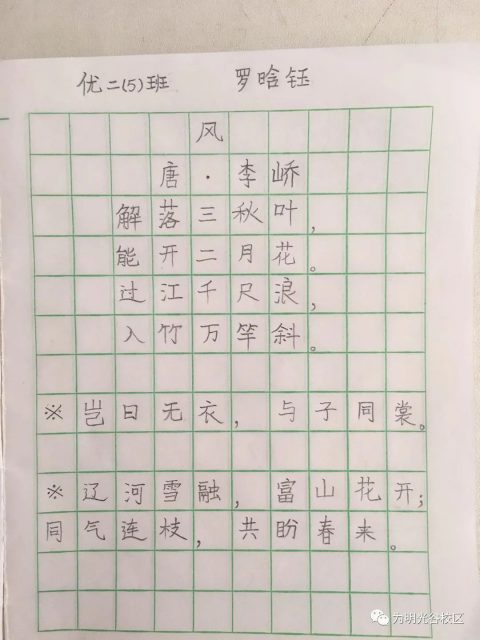 优二(5)班 罗晗钰
风
唐·李峤
解落三秋叶,
能开二月花。
过江千尺浪,
入竹万竿斜。
※岂曰无衣,与子同裳。
※辽河雪融,富山花开;
同气连枝,共盼春来。
为明光谷校区